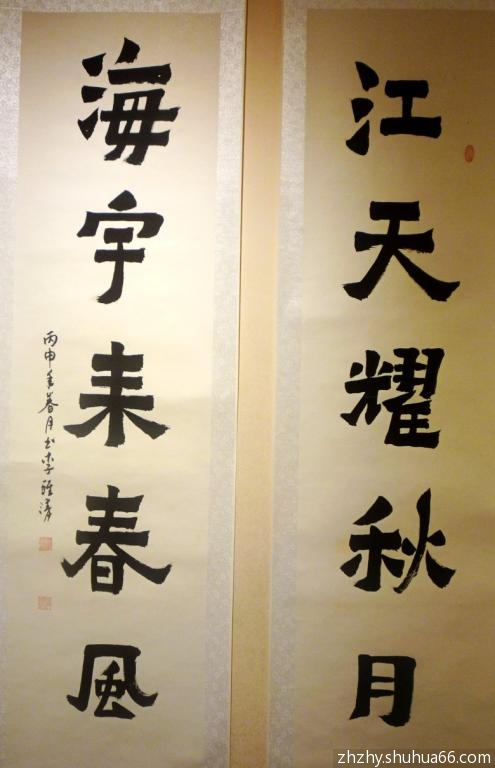 江天耀秋月
海宇来春风
丙申年春月书李雅
zhzhy.shuhua66.com